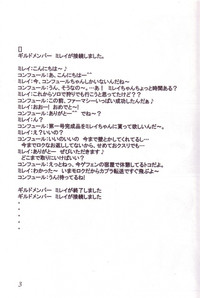 ギルドメンバー ミレイが接続しました。
ミレイ：こんにちは～♪
コンフェール：あ、こんにちは～^^
ミレイ：今、コンフェールちゃんしかいないんだね～
コンフェール：うん、そうなの～。ミレイちゃんちょっと時間ある？
ミレイ：これからソロで狩りでも行こうと思ってたけど？？
コンフェール：この前、ファーマシーいっぱい成功したんだぁ♪
ミレイ：おおー！おめでとう～！
コンフェール：ありがと～^^ でね～？
ミレイ：ん？
コンフェール：第一号完成品をミレイちゃんに貰って欲しいんだ～。
ミレイ：え？いいの？
コンフェール：いいのいいの 今まで壁とかしてくれてるし、
今までロクなお返ししてないから、せめておクスリでも。
ミレイ：ありがと～ ぜひいただきます♪
どこまで取りにいけばいい？
コンフェール：うんと、今ゲフェンの部屋で休憩してるトコだよ。
ミレイ：わかった～ いまモロクだからカプラ転送ですぐ飛ぶよ～
コンフェール：うん！待ってるね！
ギルドメンバー ミレイが終了しました
ギルドメンバー ミレイが接続しました
・
・
・
・
3